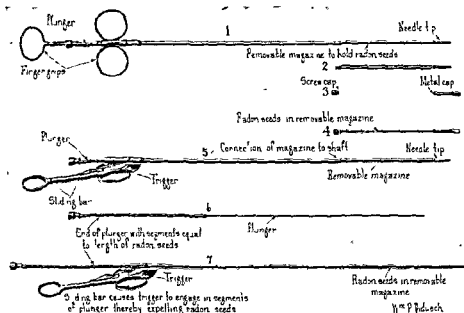 Plunger
1
Needle tip
Finger grips
Removable magazine to hold radon seeds
2
Screw cap
3
Metal cap
Radon seeds in removable magazine
4
Plunger
5
Connection of magazine to shaft
Needle tip
Trigger
Removable magazine
Sliding bar
6
End of plunger with segments equal
to length of radon seeds
Plunger
7
Trigger
Radon seeds in removable
magazine
Sliding bar causes trigger to engage in segments
of plunger thereby expelling radon seeds
Wm P